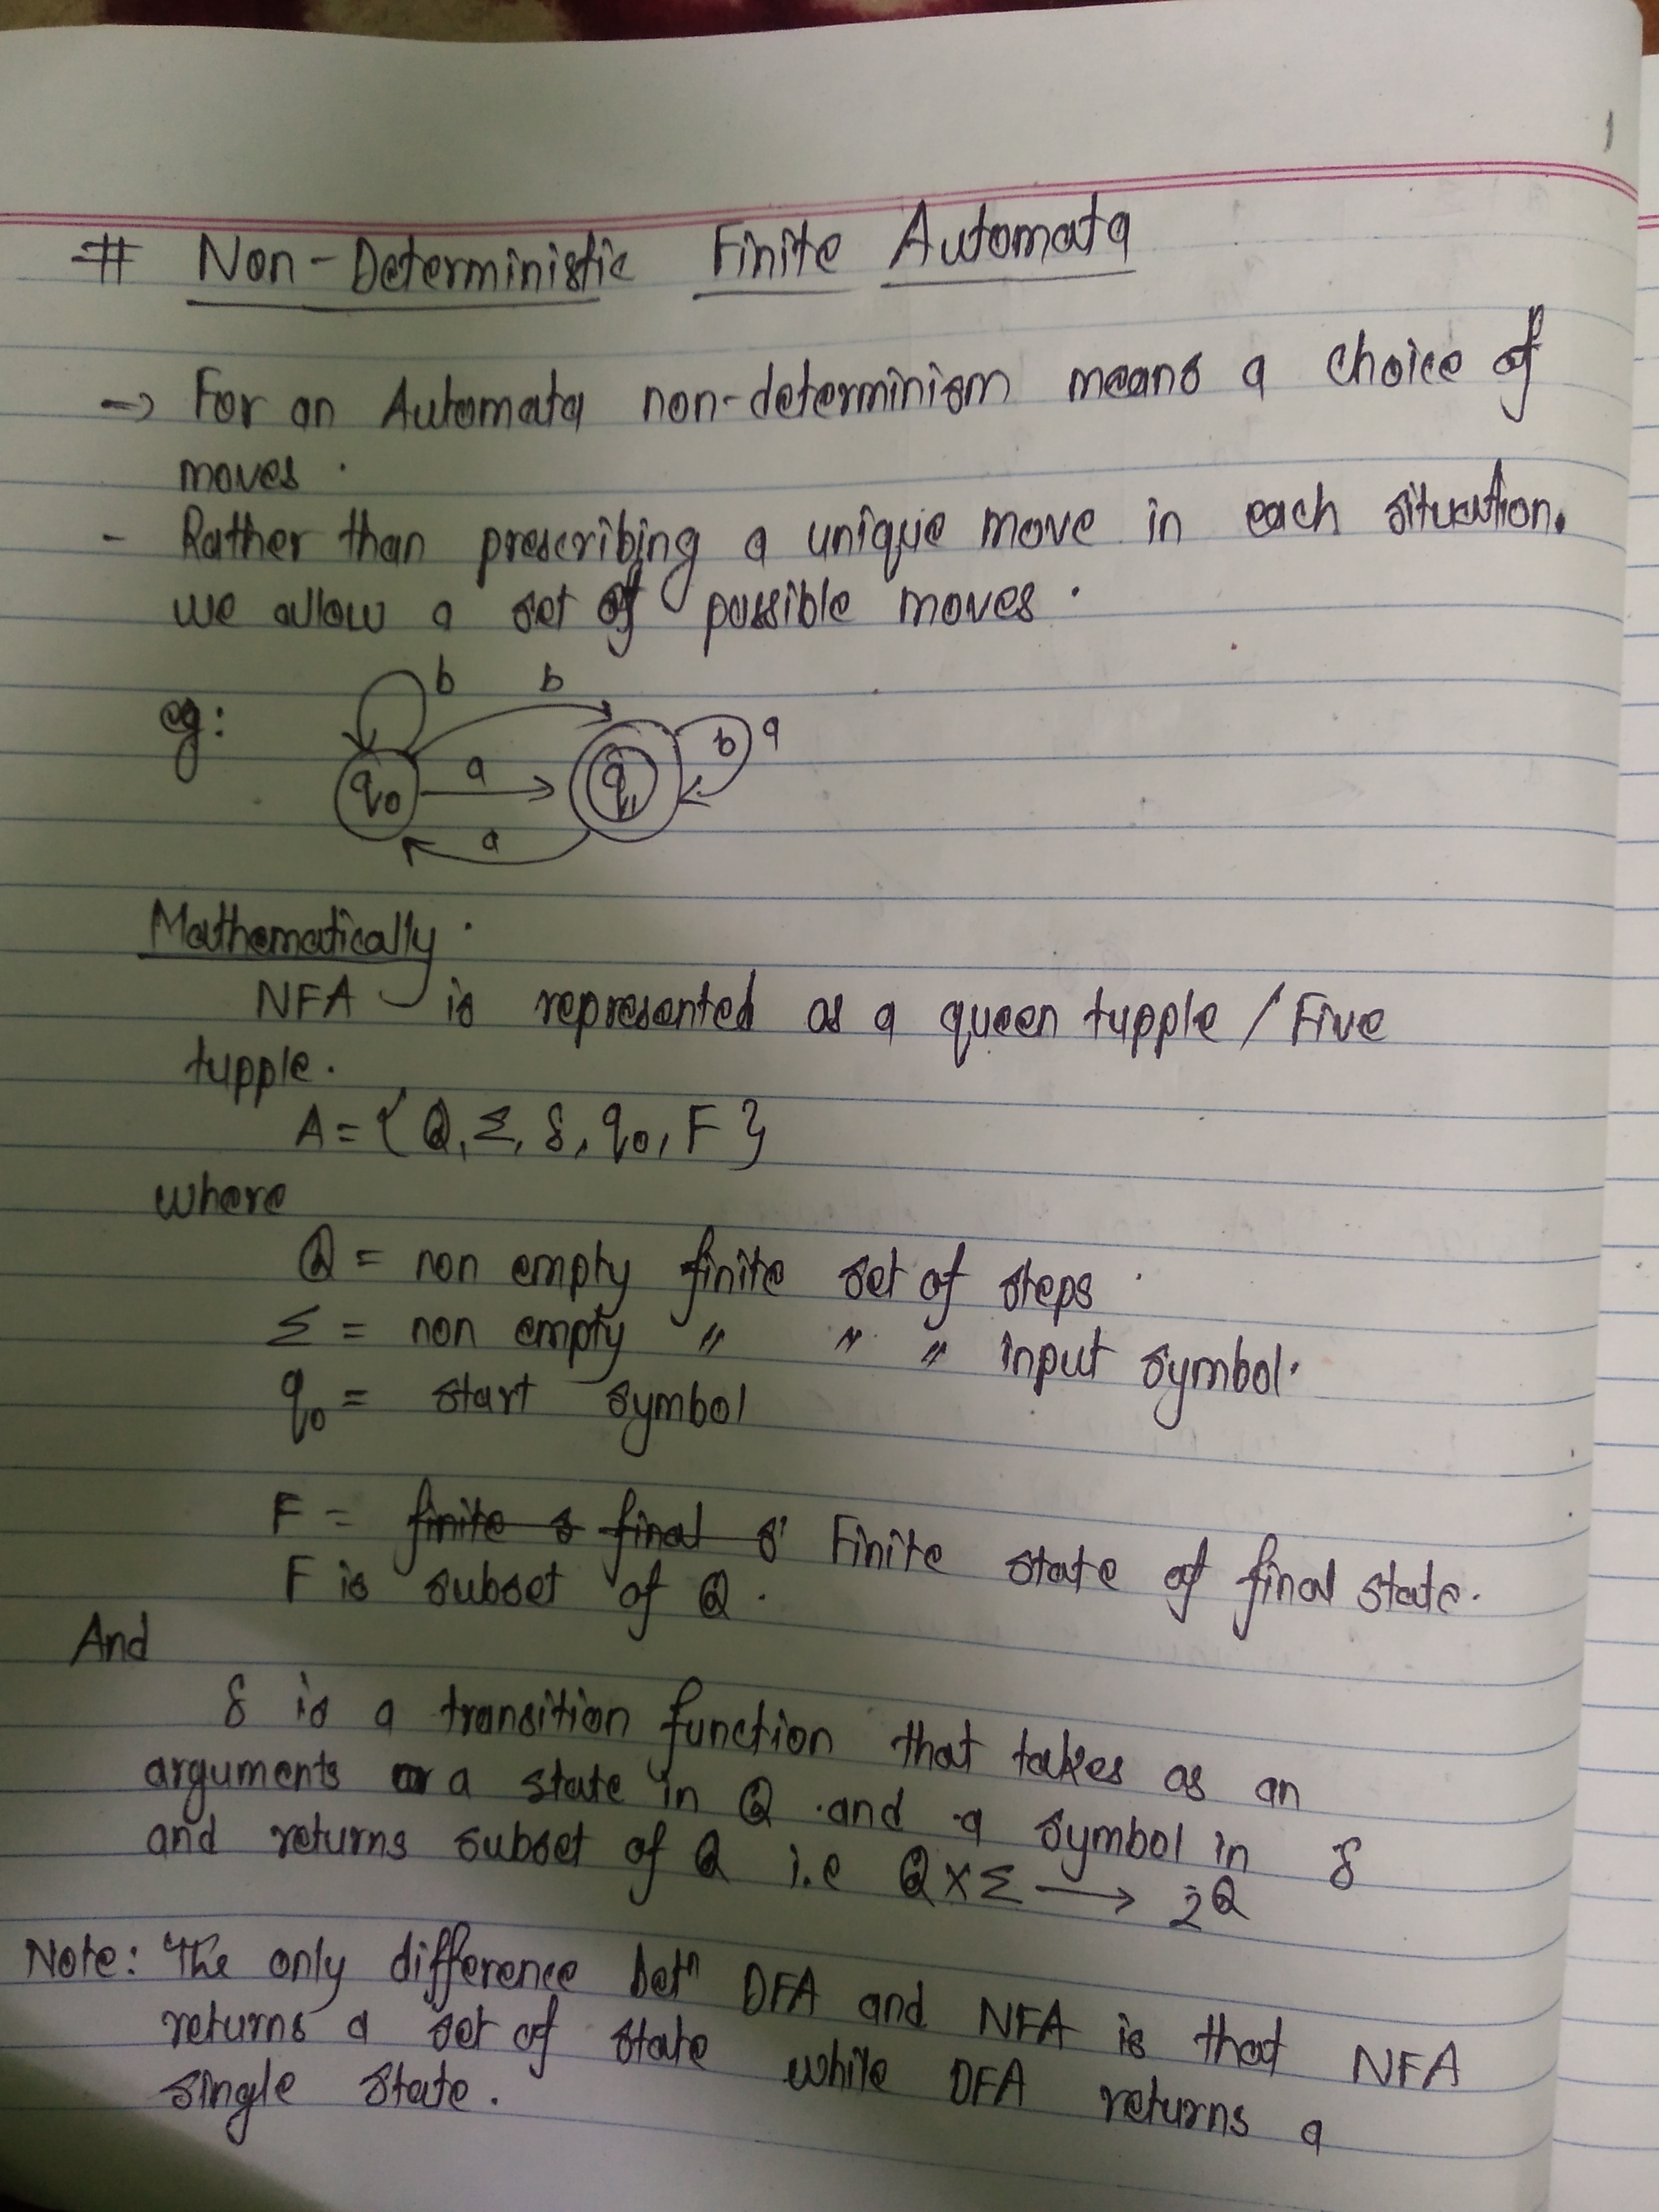 1
# Non-Deterministic Finite Automata
-> For an Automata non-determinism means a choice of
moves.
- Rather than prescribing a unique move in each situation.
we allow a set of possible moves.
b b
eg: q0 a q1 b a
a
Mathematically
NFA is represented as a queen tupple / Five
tupple.
A = { Q, Σ, δ, q0, F }
where
Q = non empty finite set of steps
Σ = non empty " " " input symbol.
q0 = start symbol
F = finite s final s Finite state of final state.
F is subset of Q.
And
δ is a transition function that takes as an
arguments a state in Q and a symbol in δ
and returns subset of Q i.e Q × Σ → 2^Q
Note: The only difference betn DFA and NFA is that NFA
returns a set of state while DFA returns a
single state.